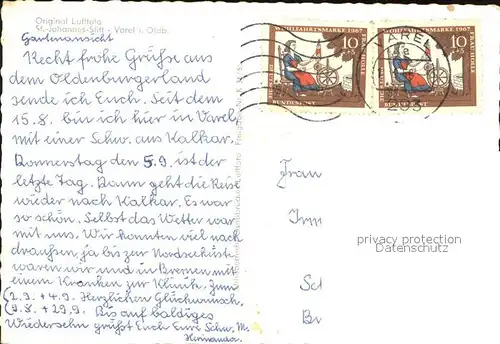 Original Luftfoto
St.-Johannes-Stift - Varel i. Oldb.
Gartenansicht
Recht frohe Grüße aus
dem Oldenburgerland
sende ich Euch. Seit dem
15.8. bin ich hier in Varel,
mit einer Schw. aus Kalkar.
Donnerstag den 5.9. ist der
letzte Tag. Dann geht die Reise
wieder nach Kalkar. Es war
so schön. Selbst das Wetter war
mit uns. Wir konnten viel nach
draußen, ja bis zur Nordseeküste
waren wir und in Bremen mit
einem Kranken zur Klinik. Zum
(2.9. + 4.9. Herzlichen Glückwunsch,
9.8. + 29.9. Bis auf baldiges
Wiedersehn grüßt Euch Eure Schw. M.
WOHLFAHRTSMARKE 1967
10
+5
FRAU HOLLE
DEUTSCHE
BUNDESPOST
WOHLFAHRTSMARKE 1967
10
+5
FRAU HOLLE
DEUTSCHE
BUNDESPOST
VAREL
Frau
Irm
Sch
Br
privacy protection
generated